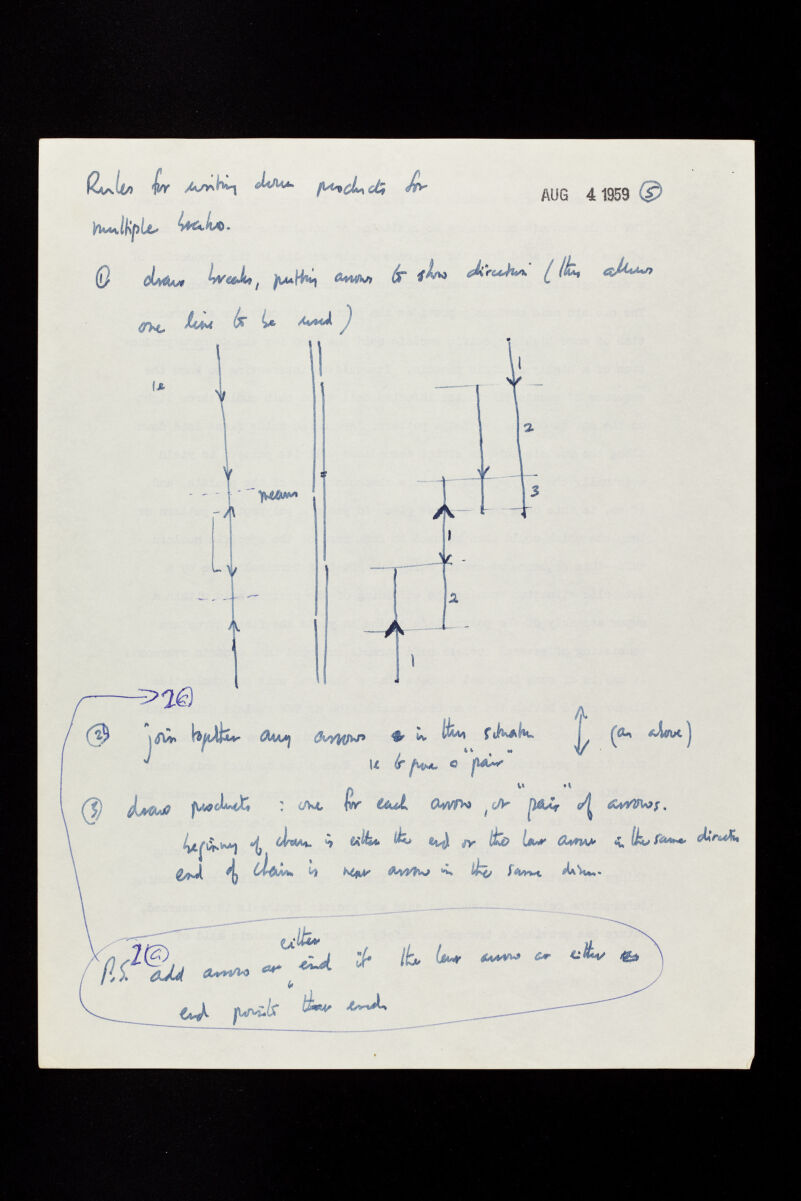 Rules for writing down products for
AUG 4 1959 ⑤
multiple breaks.
① draw breaks, putting arrows to show direction (this allows
one line to be used)
ie
means
=
1
2
3
1
2
1
2ⓐ
② join together any arrows in this situation ↕ (as above)
ie to form a "pair"
③ draw products : one for each arrow, or "pair" of arrows.
beginning of chain is either the end or the last arrow in the same direction
end of chain is next arrow in the same direction.
either
P.S. 2ⓐ add arrow at end if the last arrow at either
end points end